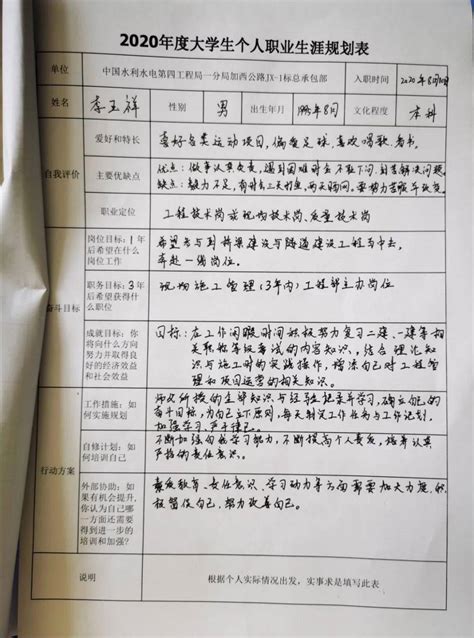 2020年度大学生个人职业生涯规划表
单位 中国水利水电第四工程局一分局加西公路JX-1标总承包部 入职时间 2020年8月10日
姓名 李玉祥 性别 男 出生年月 1995年8月 文化程度 本科
自我评价
爱好和特长 喜好各类运动项目,偏爱足球,喜欢唱歌、看书。
主要优缺点 优点:做事认真负责,遇到困难时会不耻下问,刻苦解决问题。
缺点:毅力不足,有时会三天打鱼,两天晒网。要努力克服并改变。
职业定位 工程技术岗或现场技术岗、质量技术岗
奋斗目标
岗位目标:1年后希望在什么岗位工作
希望参与到桥梁建设与隧道建设工程当中去,
奔赴一线岗位。
职务目标:3年后希望获得什么职位
现场施工管理(3年内)工程部主办岗位
成就目标:你将向什么方向努力并取得良好的经济效益和社会效益
目标:在工作闲暇时间积极努力复习二建、一建等相
关职称等级考试的内容知识,结合理论知
识与施工时的实践操作,增添自己对工程管
理和项目运营的相关知识。
行动方案
工作措施:如何实施规划
师父所授的全部知识与经验把来并学习,确立自己的
奋斗目标,为自己立下原则,每天制定工作任务与工作计划,
加强学习,严于律己。
自修计划:如何培训自己
不断加强自我学习能力,不断提高个人素质,培养认真
严格的责任意识。
外部协助:如果有机会提升,你认为自己哪一方面还需要得到进一步的培训和加强?
素质教育、责任意识、学习动力等方面都要加大力度,积
极督促自己,努力改善自己。
说明 根据个人实际情况出发,实事求是填写此表